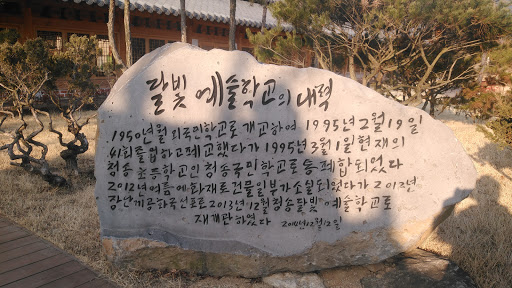 달빛 예술학교의 내력
1950년 월 외국민학교로 개교하여 1995년 2월 19일
폐교했다가 1995년 3월 1일 현재의
청송 초등학교인 청송국민학교로 통폐합되었다
2012년 여름에 화재로 건물 일부가 소실되었다가 2012년
2013년 12월 청송 달빛 예술학교로
재개관하였다 12월 12일